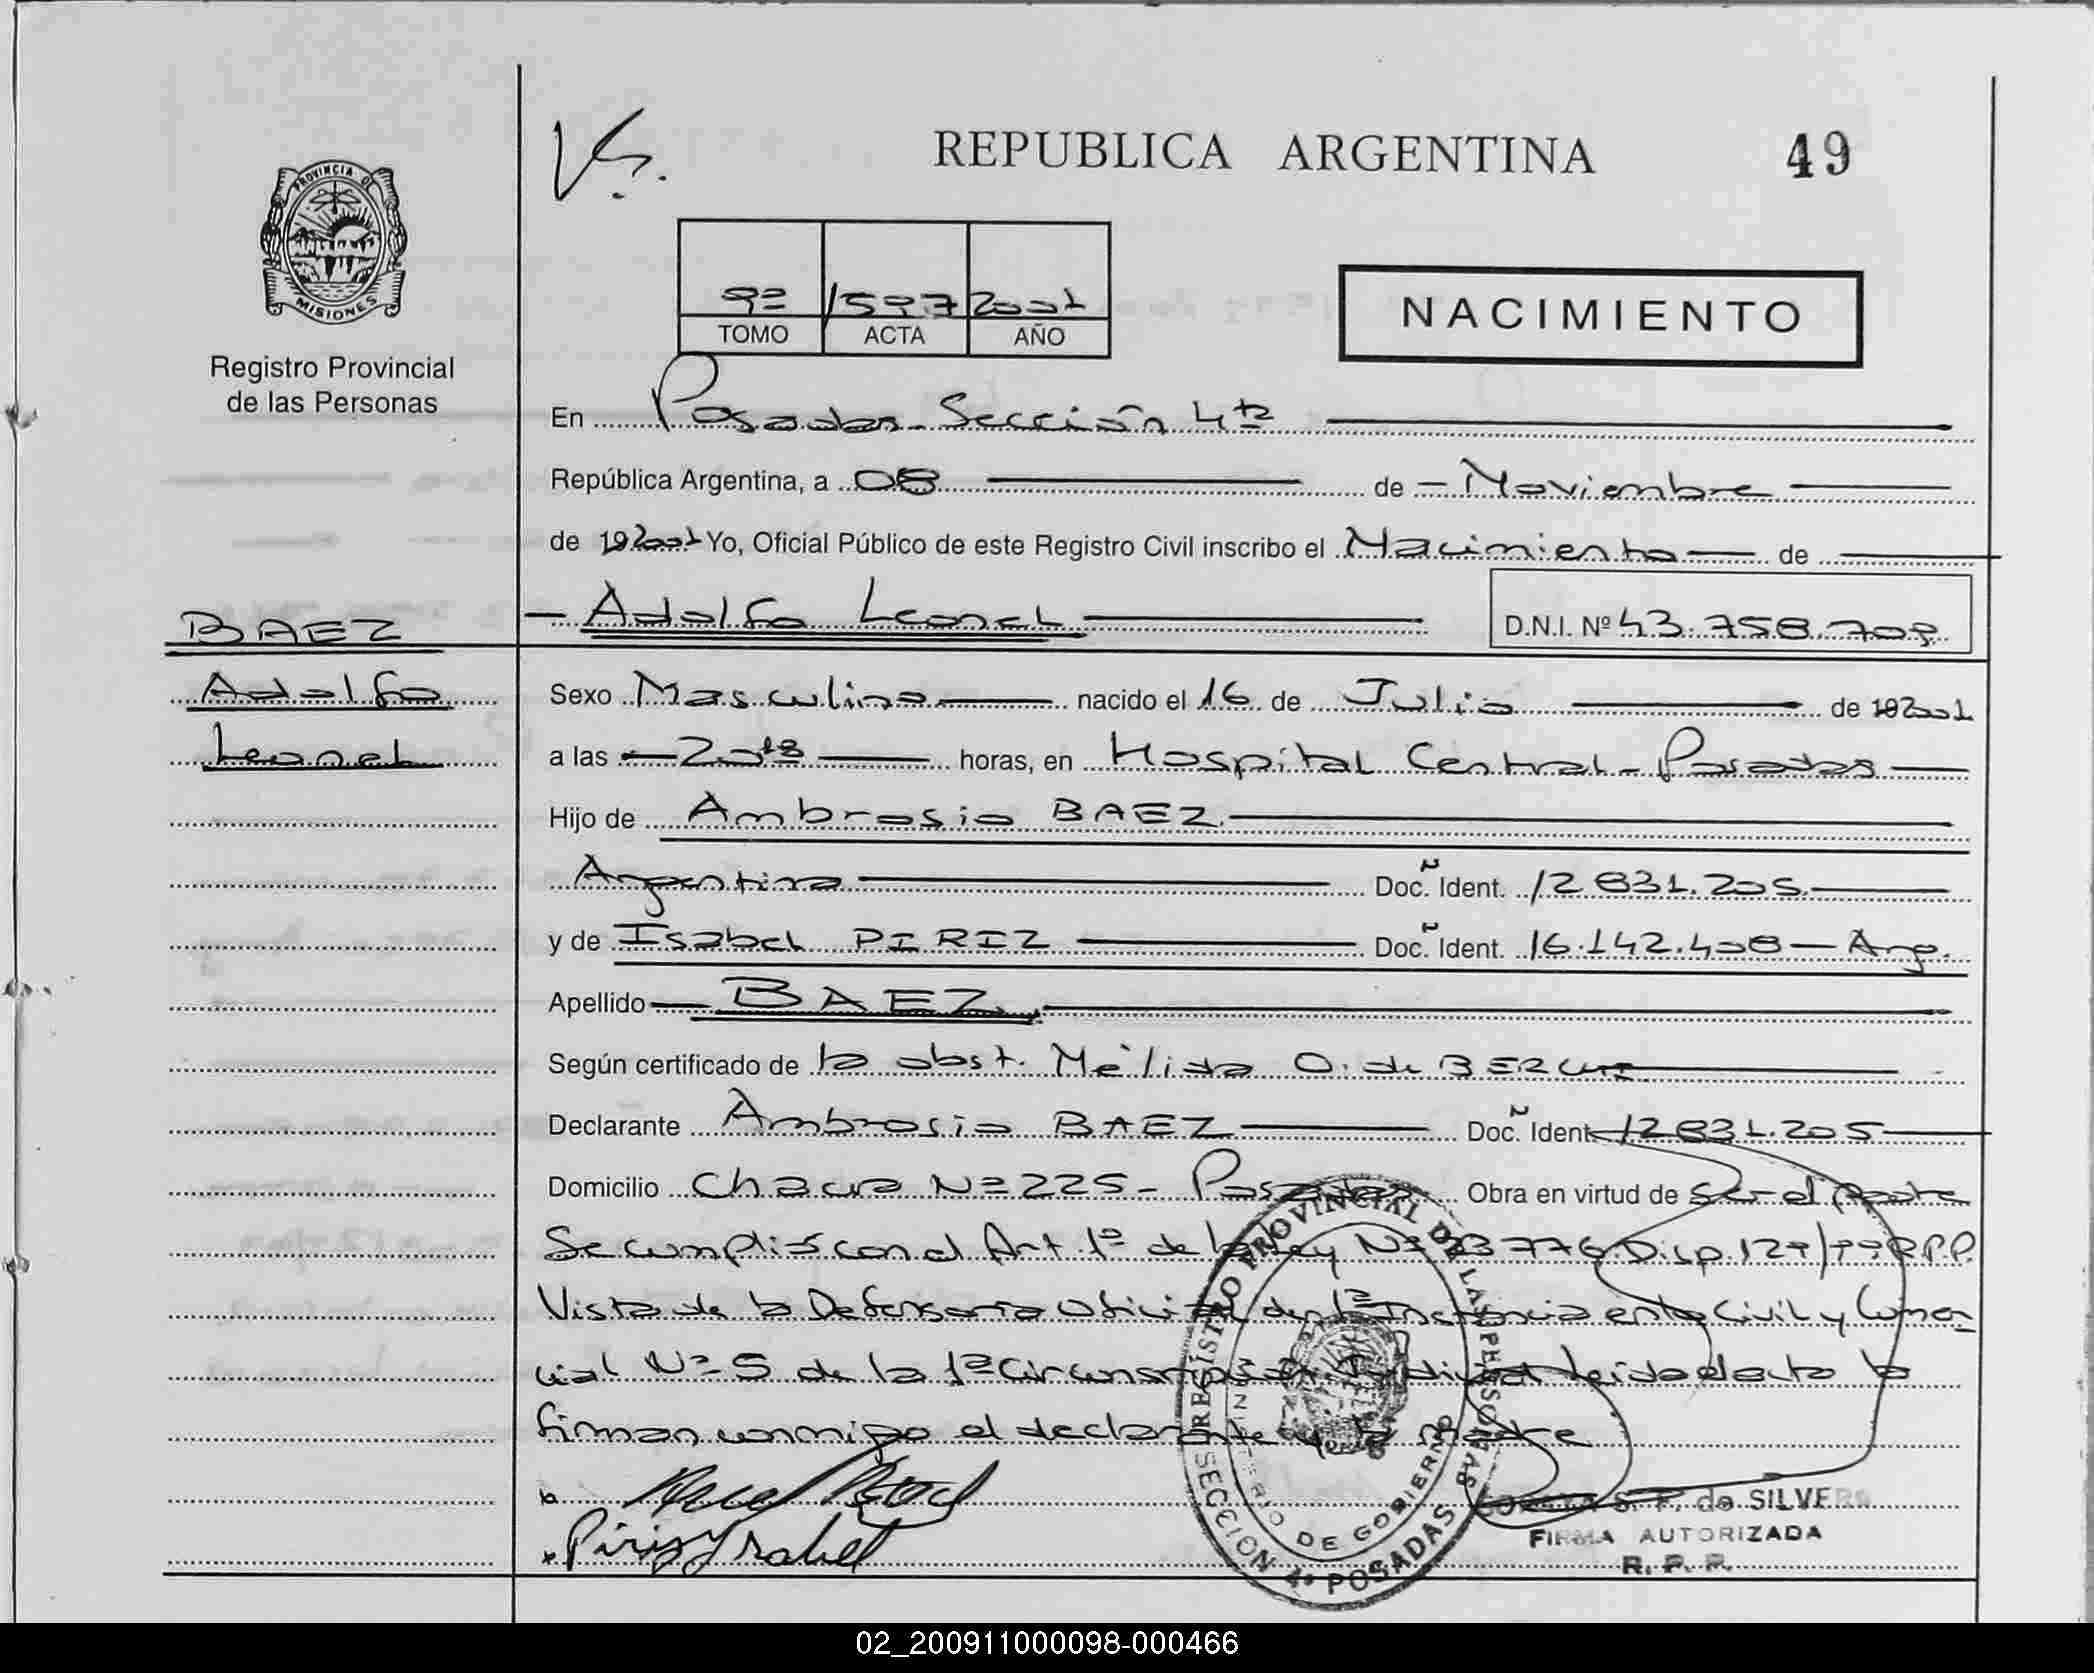 Vs.
REPUBLICA ARGENTINA
49
PROVINCIA DE
MISIONES
Registro Provincial
de las Personas
9º 1597 2001
TOMO ACTA AÑO
NACIMIENTO
En Posadas - Sección 4ta
República Argentina, a 08 de - Noviembre
de 19 2001 Yo, Oficial Público de este Registro Civil inscribo el Nacimiento de
BAEZ
Adolfo
Leonel
- Adolfo Leonel D.N.I. Nº 43.758.709
Sexo Masculino nacido el 16 de Julio de 19 2001
a las horas, en Hospital Central - Posadas
Hijo de Ambrosio BAEZ
Argentino Doc. Ident. 12.831.205
y de Isabel PIRIZ Doc. Ident. 16.142.408 - Arg.
Apellido BAEZ
Según certificado de la obst. Mélida O. de
Declarante Ambrosio BAEZ Doc. Ident. 12.831.205
Domicilio Chacra Nº 225 - Posadas Obra en virtud de Ser el padre
Se cumplió con el Art 1º de la Ley Nº 23776 Disp. 129/99 R.P.P.
Vista de la Defensoría Oficial de 1ª Instancia en lo Civil y Comer-
cial Nº 5 de la 1ª Circunscripción Judicial Leida el acta la
firman conmigo el declarante y la madre
Piriz Ysabel
REGÍSTRO PROVINCIAL DE LAS PERSONAS
MINISTERIO DE GOBIERNO
SECCION 4ª POSADAS
S. F. de SILVERO
FIRMA AUTORIZADA
R. P. P.
02_200911000098-000466